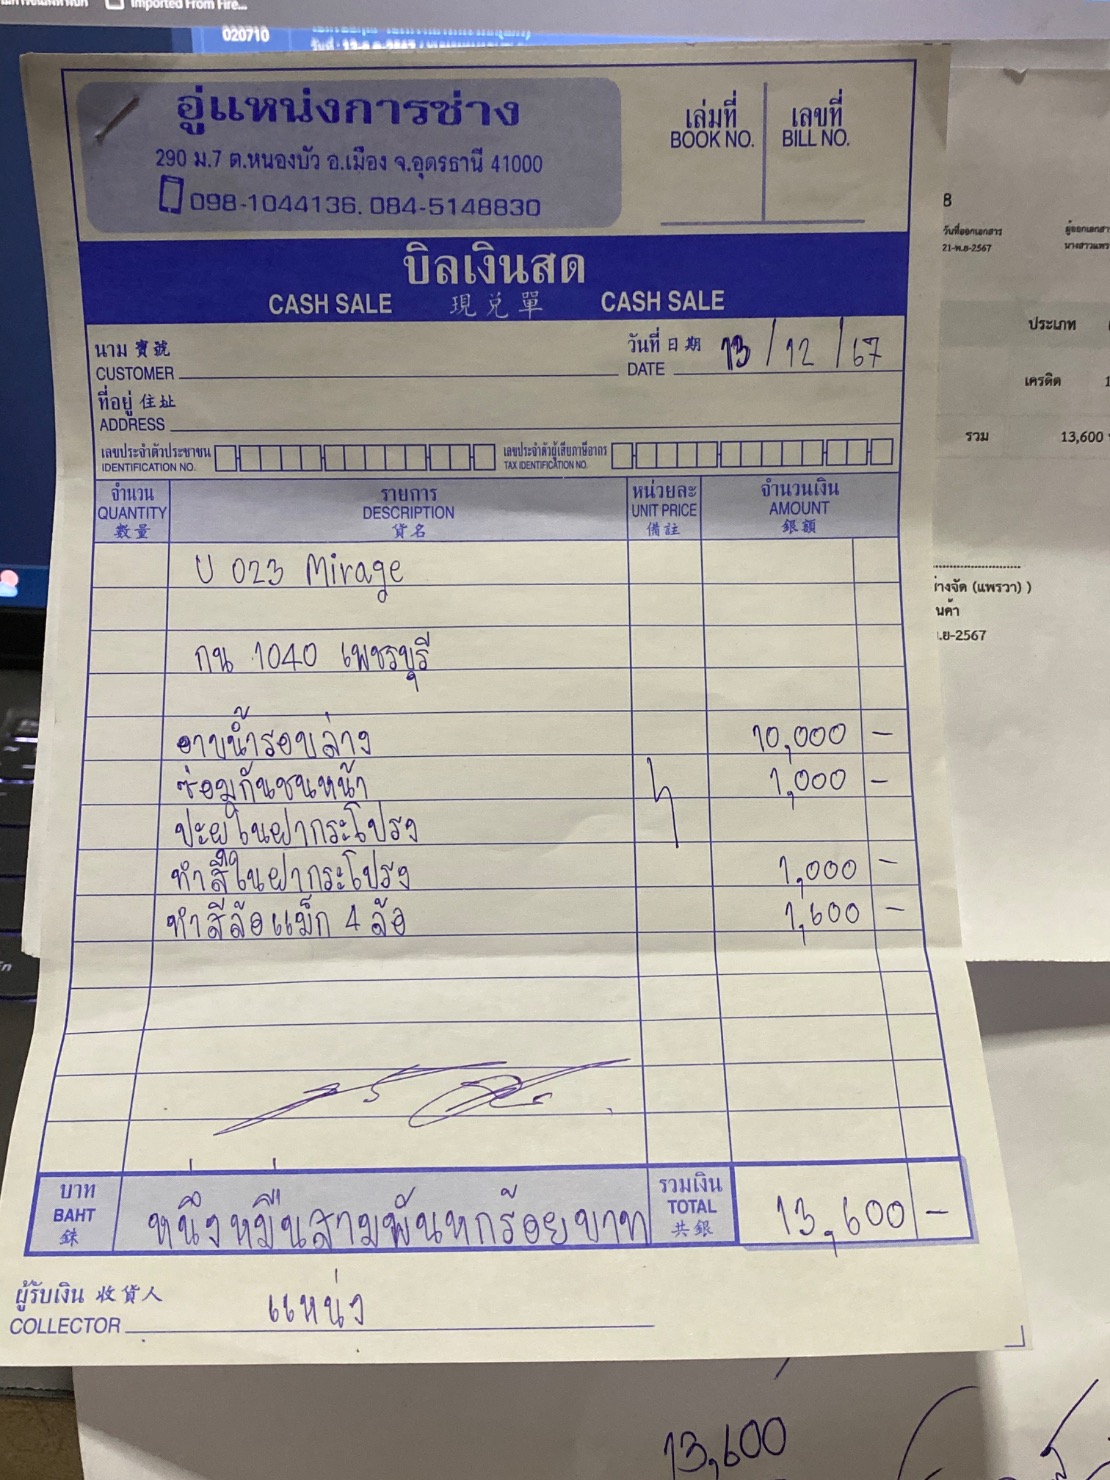 Imported From Fire...
020710
อู่แหน่งการช่าง
290 ม.7 ต.หนองบัว อ.เมือง จ.อุดรธานี 41000
098-1044136. 084-5148830
เล่มที่ เลขที่
BOOK NO. BILL NO.
บิลเงินสด
CASH SALE 現兌單 CASH SALE
นาม 寶號
CUSTOMER
วันที่ 日期
DATE 13/12/67
ที่อยู่ 住址
ADDRESS
เลขประจำตัวประชาชน
IDENTIFICATION NO.
เลขประจำตัวผู้เสียภาษีอากร
TAX IDENTIFICATION NO.
จำนวน รายการ หน่วยละ จำนวนเงิน
QUANTITY DESCRIPTION UNIT PRICE AMOUNT
數量 貨名 備註 銀額
U 023 Mirage
กน 1040 เพชรบุรี
อาบน้ำรอบล่าง 10,000 -
ซ่อมกันชนหน้า 1,000 -
ปะผุในฝากระโปรง
ทำสีในฝากระโปรง 1,000 -
ทำสีล้อแม็ก 4 ล้อ 1,600 -
บาท
BAHT
銖
หนึ่งหมื่นสามพันหกร้อยบาท
รวมเงิน
TOTAL
共銀
13,600 -
ผู้รับเงิน 收貨人
COLLECTOR แหน่ง
8
วันที่ออกเอกสาร
21-พ.ย-2567
ประเภท
เครดิต
รวม 13,600
างจัด (แพรวา) )
นค้า
.ย-2567
13,600